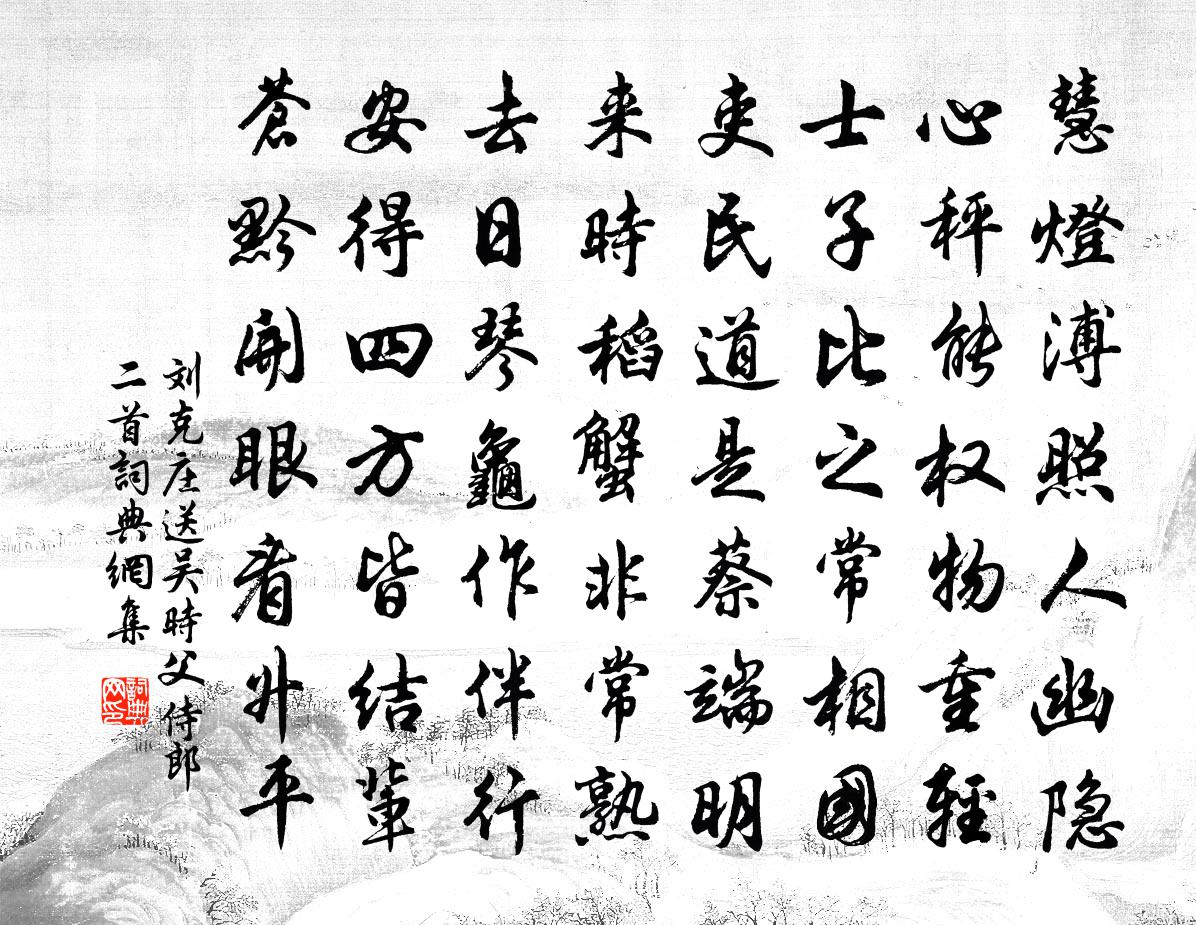 慧燈溥照人幽隐
心秤能权物重輕
士子比之常相國
吏民道是蔡端明
来時稻蟹非常熟
去日琴龜作伴行
安得四方皆结輩
蒼黔開眼看升平
刘克庄送吴時父侍郎
二首詞典網集
詞典網印